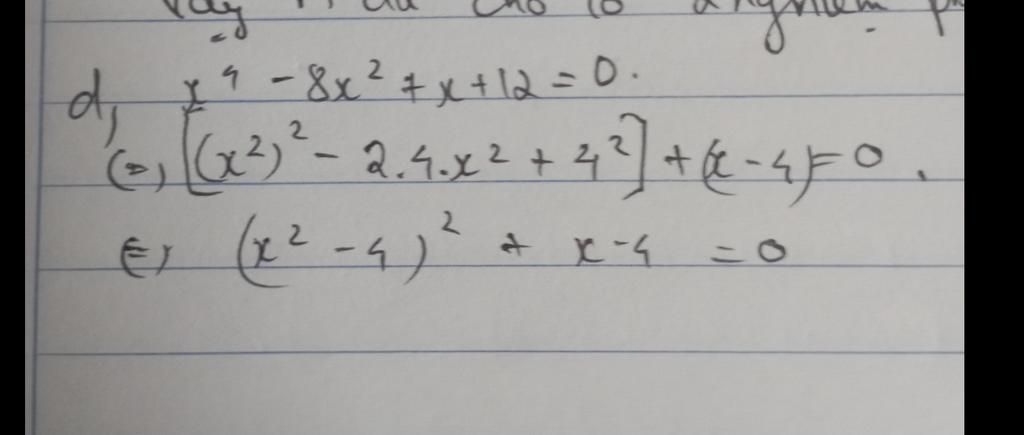 d, x⁴ - 8x² + x + 12 = 0.
(=) [(x²)² - 2.4.x² + 4²] + (x - 4) = 0.
(=) (x² - 4)² + x - 4 = 0